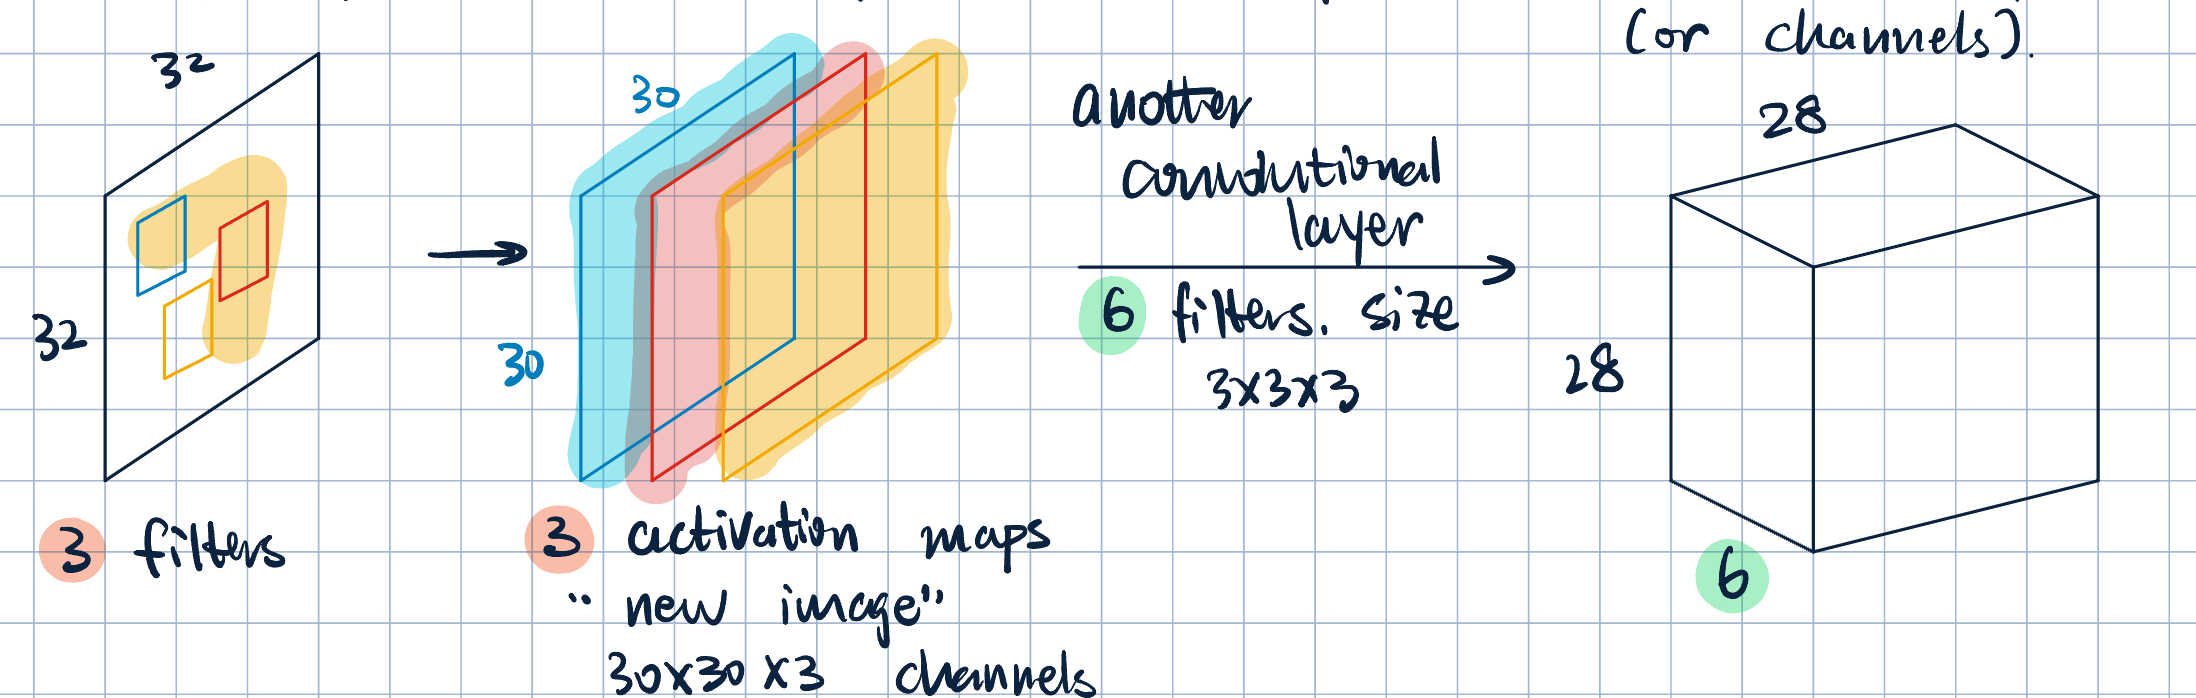 (or channels).
32
32
3 filters
30
30
3 activation maps
"new image"
30x30x3 channels
another
convolutional
layer
6 filters. size
3x3x3
28
28
6